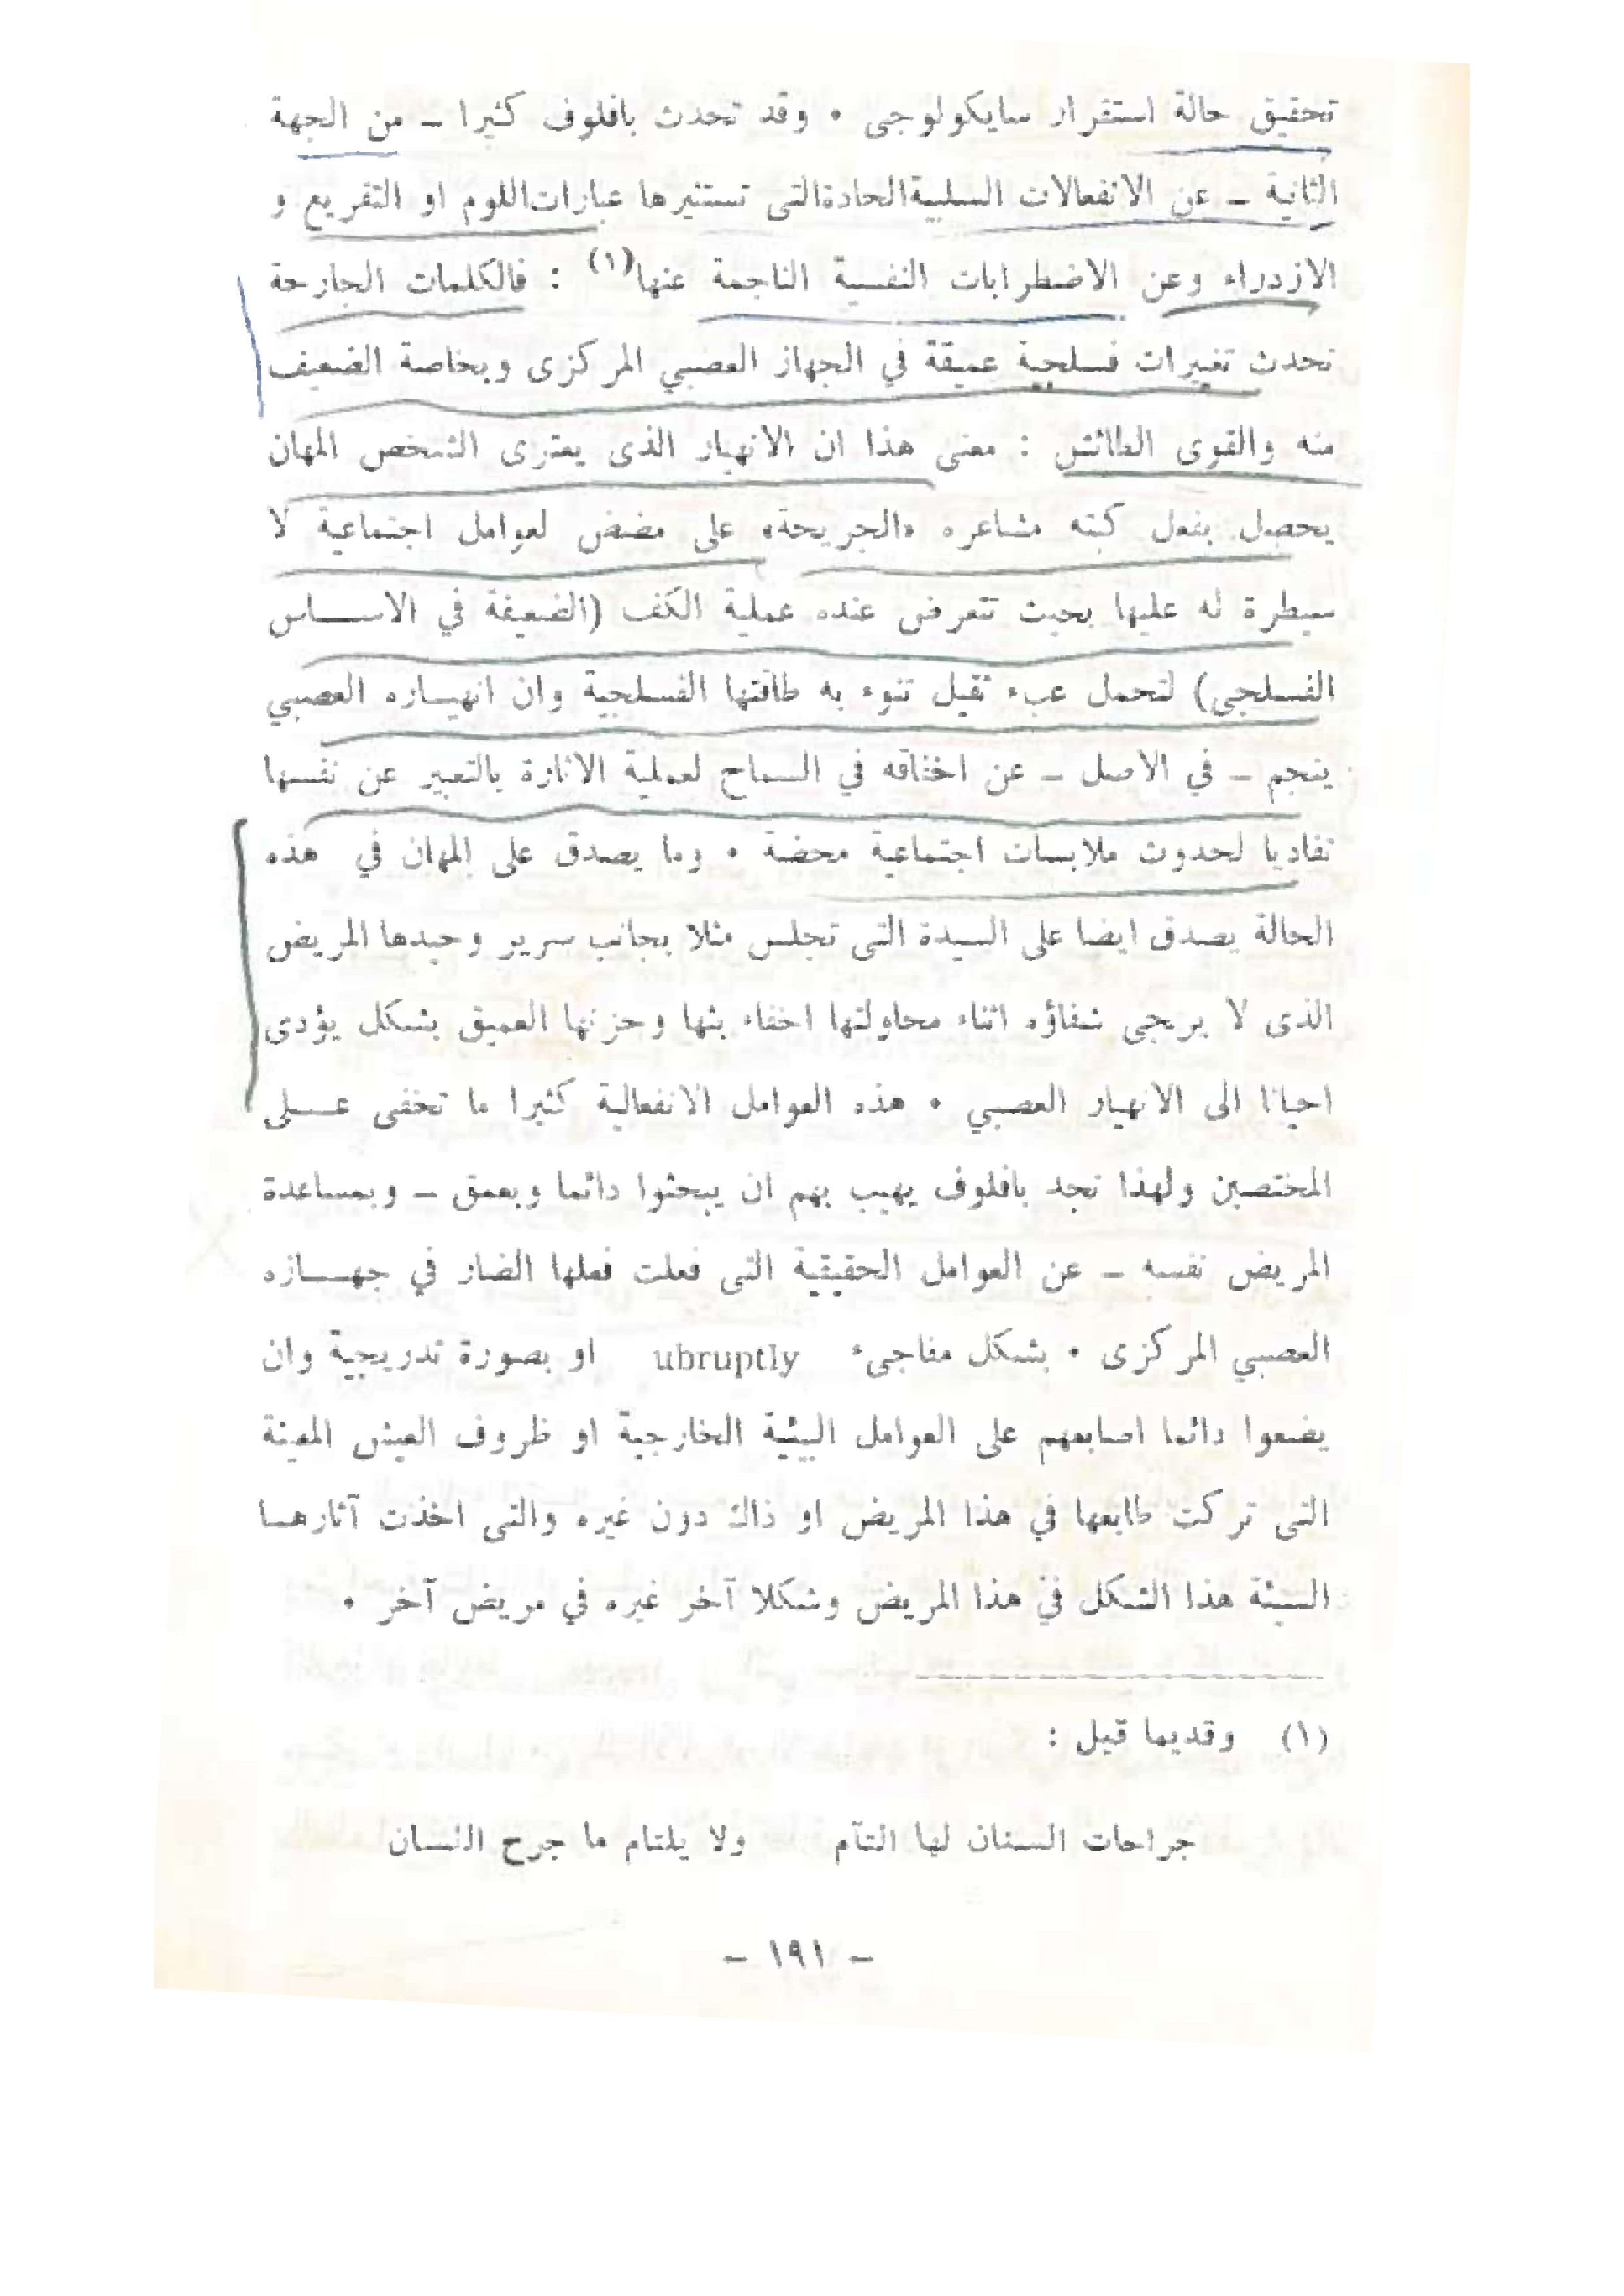 تحقيق حالة استقرار سايكولوجى • وقد تحدث بافلوف كثيرا – من الجهة
الثانية – عن الانفعالات السلبية الحادة التى تستثيرها عبارات اللوم او التقريع و
الازدراء وعن الاضطرابات النفسية الناجمة عنها(١) : فالكلمات الجارحة
تحدث تغيرات فسلجية عميقة في الجهاز العصبي المركزى وبخاصة الضعيف
منه والقوى الطائش : معنى هذا ان الانهيار الذى يعترى الشخص المهان
يحصل بفعل كبته مشاعره «الجريحة» على مضض لعوامل اجتماعية لا
سيطرة له عليها بحيث تتعرض عنده عملية الكف (الضعيفة في الاساس
الفسلجى) لتحمل عبء ثقيل تنوء به طاقتها الفسلجية وان انهياره العصبي
ينجم – في الاصل – عن اخفاقه في السماح لعملية الاثارة بالتعبير عن نفسها
تفاديا لحدوث ملابسات اجتماعية محضة • وما يصدق على المهان في هذه
الحالة يصدق ايضا على السيدة التى تجلس مثلا بجانب سرير وحيدها المريض
الذى لا يرجى شفاؤه اثناء محاولتها اخفاء بثها وحزنها العميق بشكل يؤدى
احيانا الى الانهيار العصبي • هذه العوامل الانفعالية كثيرا ما تخفى عــلى
المختصين ولهذا نجد بافلوف يهيب بهم ان يبحثوا دائما وبعمق – وبمساعدة
المريض نفسه – عن العوامل الحقيقية التى فعلت فعلها الضار في جهــازه
العصبي المركزى • بشكل مفاجىء ubruptly او بصورة تدريجية وان
يضعوا دائما اصابعهم على العوامل البيئية الخارجية او ظروف العيش المعينة
التى تركت طابعها في هذا المريض او ذاك دون غيره والتى اخذت آثارهــا
السيئة هذا الشكل في هذا المريض وشكلا آخر غيره في مريض آخر •
(١) وقديما قيل :
جراحات السنان لها التآم ولا يلتام ما جرح اللسان
– ١٩١ –